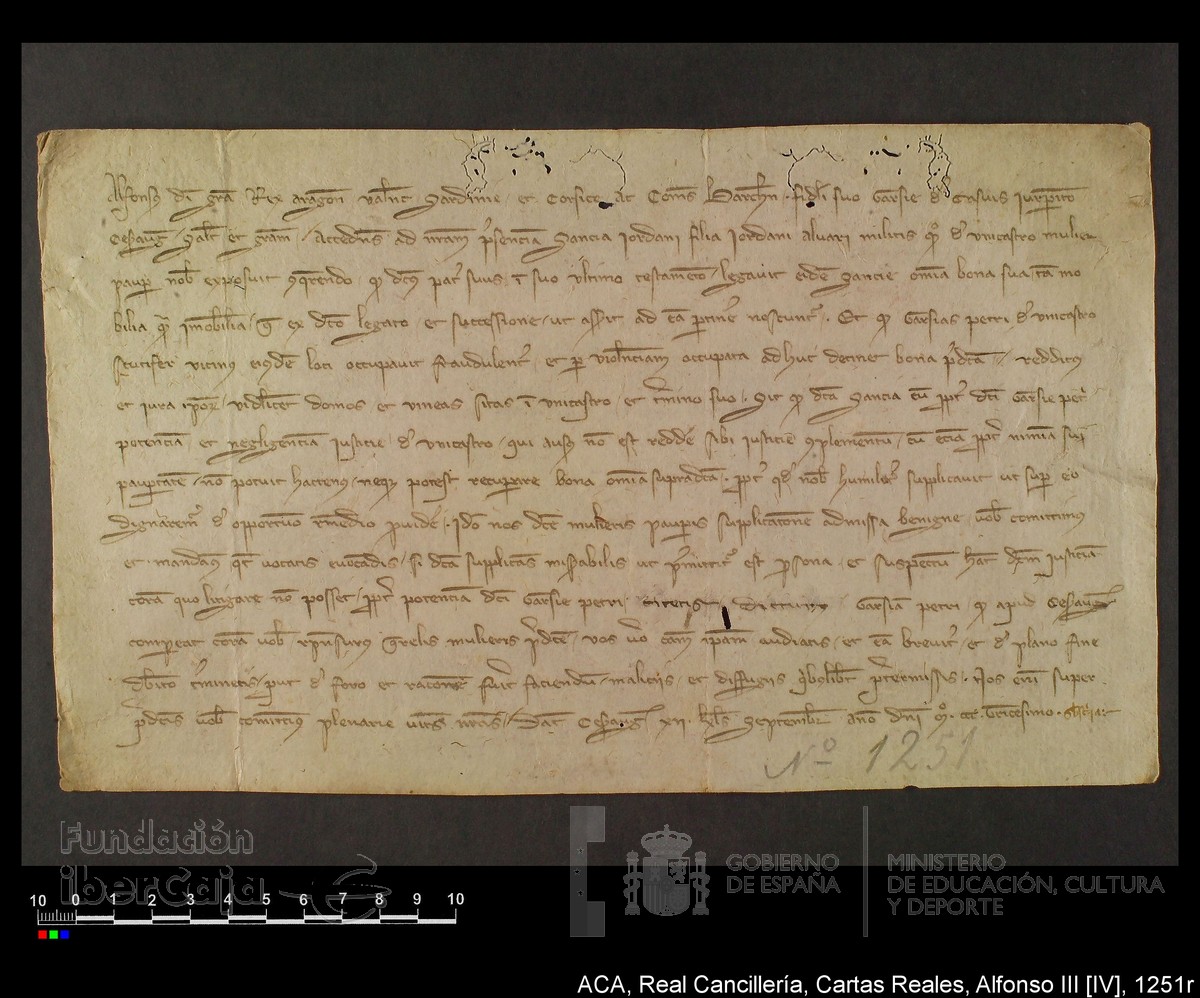 Alfonsus di gra Rex aragon valent Sardinie et Corsice ac Comes Barchn fideli suo Garsie de iurperito
Cesaug Salt et gram Accedens ad nram presenciam Sancia Jordani filia Jordani alvari militis quo de unicastro mulier
paup nob exposuit conquerendo qd dcus pater suus in suo ultimo testamento legavit eidem Sancie omnia bona sua tam mo
bilia qm imobilia que ex dco legato et successione ut asserit ad eam pertinere noscuntur Et qd Garsias petri de unicastro
scutifer vicinus eiusdem loci occupavit fraudulenter et per violenciam occupata adhuc detinet bona predcta redditus
et iura ipor videlicet domos et vineas sitas in unicastro et termino suo Sic qd dcta Sancia tum ppter dcti Garsie petri
potenciam et negligenciam iusticie de unicastro qui ausus non est reddere sibi iusticie complementum tum eciam ppter nimiam sui
paupertatem non potuit hactenus neque potest recuperare bona omnia supradcta ppter quod nob humiliter supplicavit ut super eo
dignaremur de opportuno remedio providere Ideo nos dcte mulieris pauperis supplicacione admissa benigne vob comittimus
et mandamus qt vocatis evocandis si dcta supplicans miserabilis ut premittitur est persona et suspectum hac iusticiam
coram quo litigare non posset ppter potenciam dcti Garsie petri citetis dictum Garsiam petri qd apud Cesaug
compareat coram vob responsurus querelis mulieris predcte vos vero cam ipam audiatis et eam breviter et de plano fine
debito terminetis put de foro et racone fuerit faciendum maliciis et diffugiis quibuslibet pretermissis Nos enim super
predctis vob comittimus plenarie vices nras Dat Cesaug XII kls Septembr anno dni Mo CCC tricesimo
Nº 1251
Fundación
iberCaja
GOBIERNO
DE ESPAÑA
MINISTERIO
DE EDUCACIÓN, CULTURA
Y DEPORTE
10 0 1 2 3 4 5 6 7 8 9 10
ACA, Real Cancillería, Cartas Reales, Alfonso III [IV], 1251r